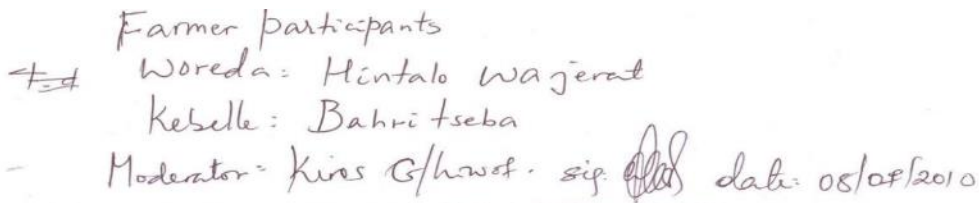 Farmer participants
Woreda: Hintalo Wajerat
Kebelle: Bahri tseba
Moderator: Kiros G/hiwot. sig. date: 08/07/2010